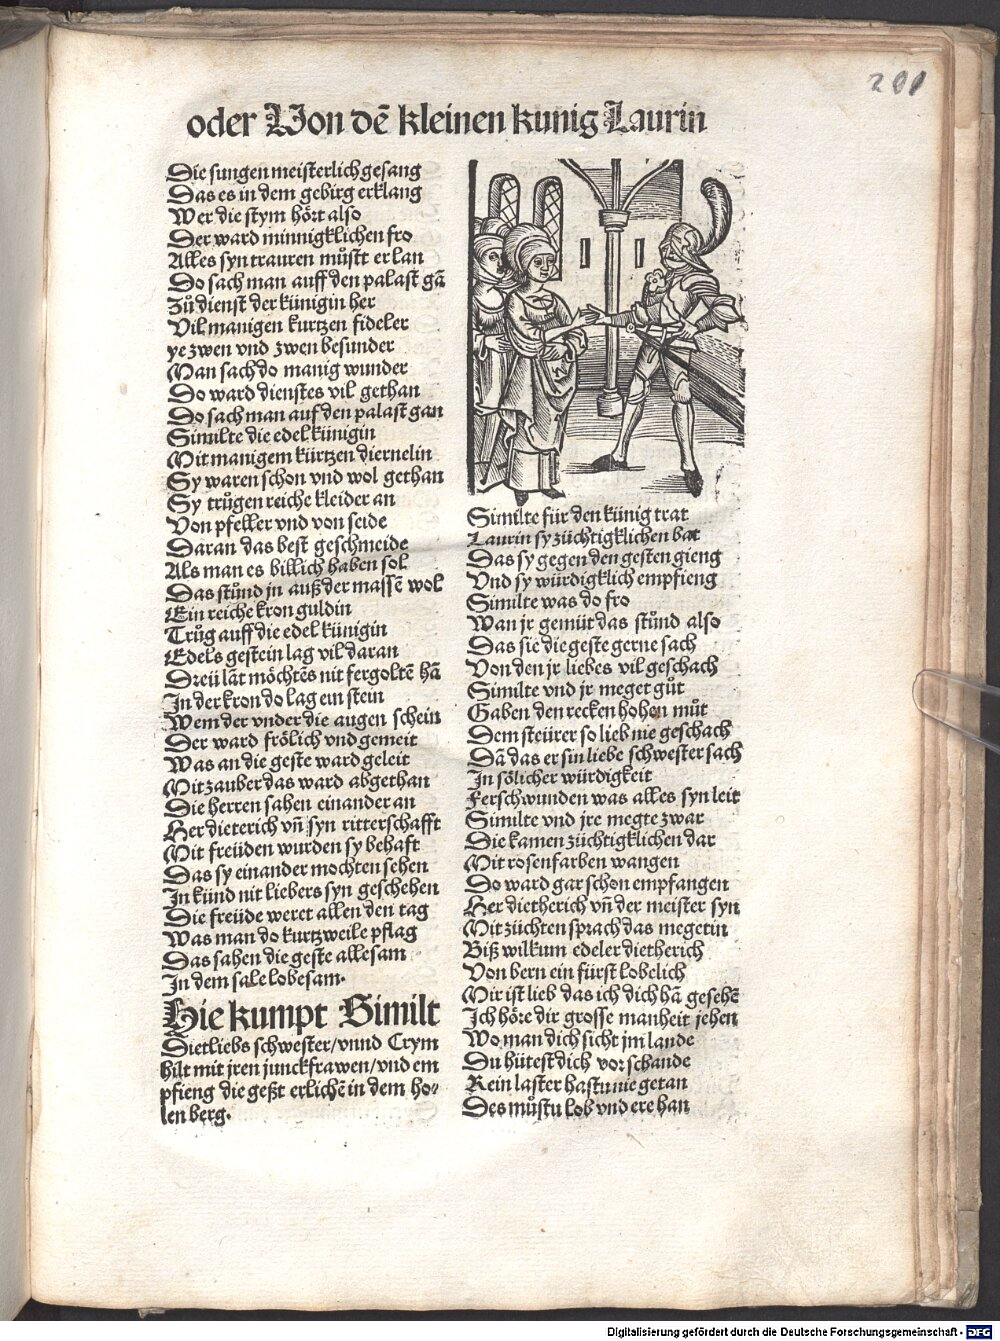 201
oder Von dē kleinen kunig Laurin
Die sungen meisterlich gesang
Das es in dem gebirg erklang
Wer die stym hört also
Der ward minnigklichen fro
Alles syn trauren můstt erlan
Do sach man auff den palast gā
Zů dienst der künigin her
Vil manigen kurtzen fideler
ye zwen vnd zwen besunder
Man sach do manig wunder
Do ward dienstes vil gethan
Do sach man auf den palast gan
Similte die edel künigin
Mit manigem kürtzen diernelin
Sy waren schon vnd wol gethan
Sy trůgen reiche kleider an
Von pfeller vnd von seide
Daran das best geschmeide
Als man es billich haben sol
Das stůnd jn auß der massē wol
Ein reiche kron guldin
Trůg auff die edel künigin
Edels gestein lag vil daran
Dreü lāt möchtēs nit fergoltē hā
In der kron do lag ein stein
Wem der vnder die augen schein
Der ward frölich vnd gemeit
Was an die geste ward geleit
Mit zauber das ward abgethan
Die herren sahen einander an
Her dieterich vn̄ syn ritterschafft
Mit freüden wurden sy behaft
Das sy einander mochten sehen
In künd nit liebers syn geschehen
Die freüde weret allen den tag
Was man do kurtzweile pflag
Das sahen die geste allesam
In dem sale lobesam.
Hie kumpt Similt
Dietliebs schwester/vnnd Crym
hilt mit jren junckfrawen/vnd em
pfieng die geßt erlichē in dem ho⸗
len berg.
Similte für den künig trat
Laurin sy züchtigklichen bat
Das sy gegen den gesten gieng
Vnd sy würdigklich empfieng
Similte was do fro
Wan jr gemüt das stůnd also
Das sie die geste gerne sach
Von den jr liebes vil geschach
Similte vnd jr meget gůt
Gaben den recken hohen můt
Dem steürer so lieb nie geschach
Dā das er sin liebe schwester sach
In sölicher würdigkeit
Ferschwunden was alles syn leit
Similte vnd jre megte zwar
Die kamen züchtigklichen dar
Mit rosenfarben wangen
Do ward gar schon empfangen
Her dietherich vn̄ der meister syn
Mit züchten sprach das megetin
Biß wilkum edeler dietherich
Von bern ein fürst lobelich
Mir ist lieb das ich dich hā gesehē
Ich höre dir grosse manheit jehen
Wo man dich sicht jm lande
Du hütest dich vor schande
Kein laster hastu nie getan
Des můstu lob vnd ere han
Digitalisierung gefördert durch die Deutsche Forschungsgemeinschaft - DFG